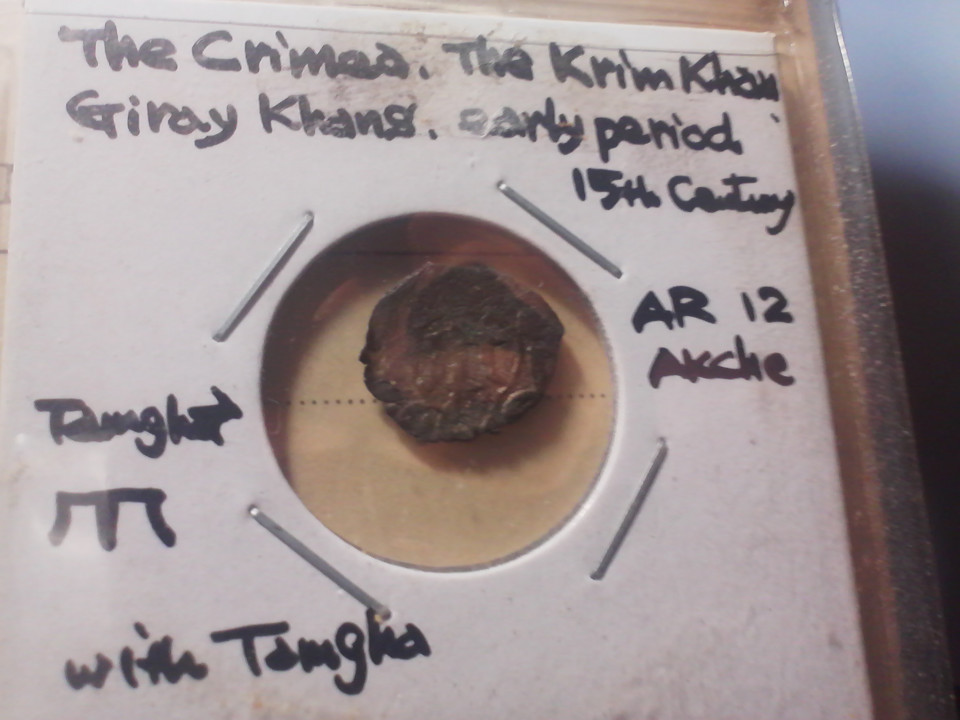 The Crimea. The Krim Khan
Giray Khans. early period.
15th Century
AR 12
Akche
Tamgha
with Tamgha